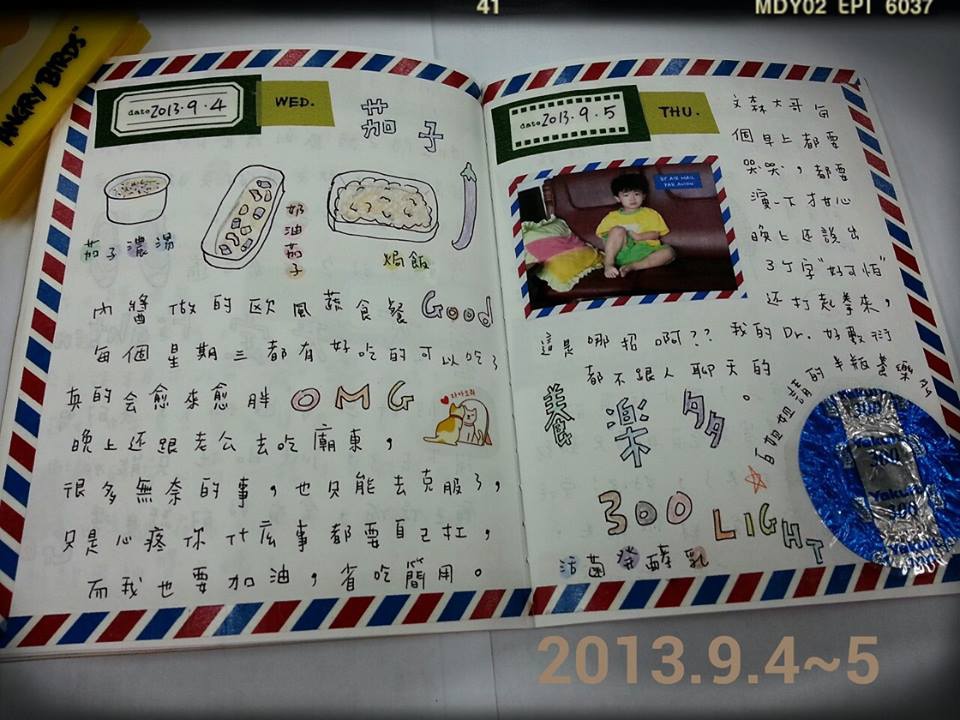 41
MDY02 EPT 6037
ANGRY BIRDS
date 2013.9.4
WED.
茄子
茄子濃湯
奶油茄子
焗飯
內醬做的歐風蔬食餐 Good
每個星期三都有好吃的可以吃了
真的會愈來愈胖 OMG
晚上還跟老公去吃廟東，
很多無奈的事，也只能去克服了，
只是心疼你什麼事都要自己扛，
而我也要加油，省吃簡用。
date 2013.9.5
THU.
文森大哥每
個早上都要
哭哭，都要
演一下才甘心
晚上還說出
3個字"好可惜"
還打起拳來，
BY AIR MAIL
PAR AVION
這是哪招啊?? 我的Dr. 好敷衍
都不跟人聊天的。
姐姐請的半瓶養樂多
養樂多
300 LIGHT
活菌發酵乳
Yakult
300
2013.9.4~5